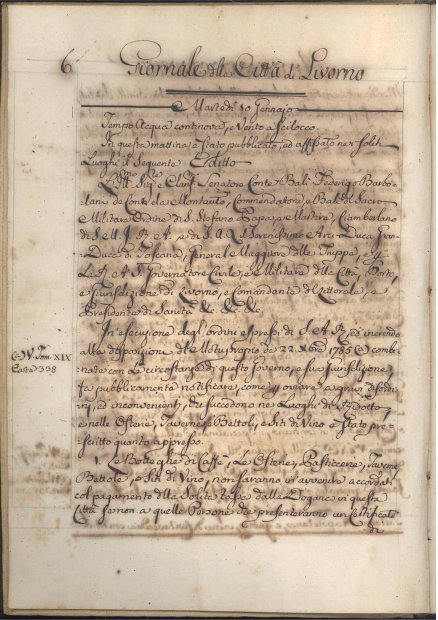 6
Giornale della Città di Livorno
Martedì 10 Gennajo
Tempo Acqua continova, e Vento a Scilocco.
In questa mattina è stato pubblicato, ed affissato ne' soliti
Luoghi il seguente Editto
L'Ill. Sig. e Clariss. Senatore Conte Balì Federigo Barbo-
lani de Conti da Montauto, Commendatore, e Balì del Sacro
Militare Ordine di S. Stefano Papa, e Martire, Ciamberlano
di S. M. I. R. A. e di S. A. R. il Serenissimo Arci-Duca Gran-
Duca di Toscana, General Maggiore delle Truppe, e p.
La R. A. S. Governatore Civile, e Militare della Città, Porto,
e Giurisdizione di Livorno, e Comandante del Littorale, e
Presidente di Sanità &c. &c. &c.
In esecuzione degli ordini espressi di S. A. R., ed inerendo
alla disposizione del Motuproprio de 22. 1785 combi-
nate con le circostanze di questo Governo, e sua Giurisdizione
fa pubblicamente notificare, come p. ovviare a gravi disordi-
ni, ed inconvenienti, che succedono ne Luoghi del Ridotto,
e nelle Osterie, Taverne, e Bettoli, e Siti di Vino è stato pre-
scritto quanto appresso.
Tom. XIX
Carta 338
1. Le Botteghe di Caffè, Le Osterie, Pasticcerie, Taverne,
Bettole, e Siti di Vino, non saranno in avvenire accordati
col pagamento della Solita tassa dalla Dogana in questa
Città se non a quelle Persone che presenteranno un Certificato
di